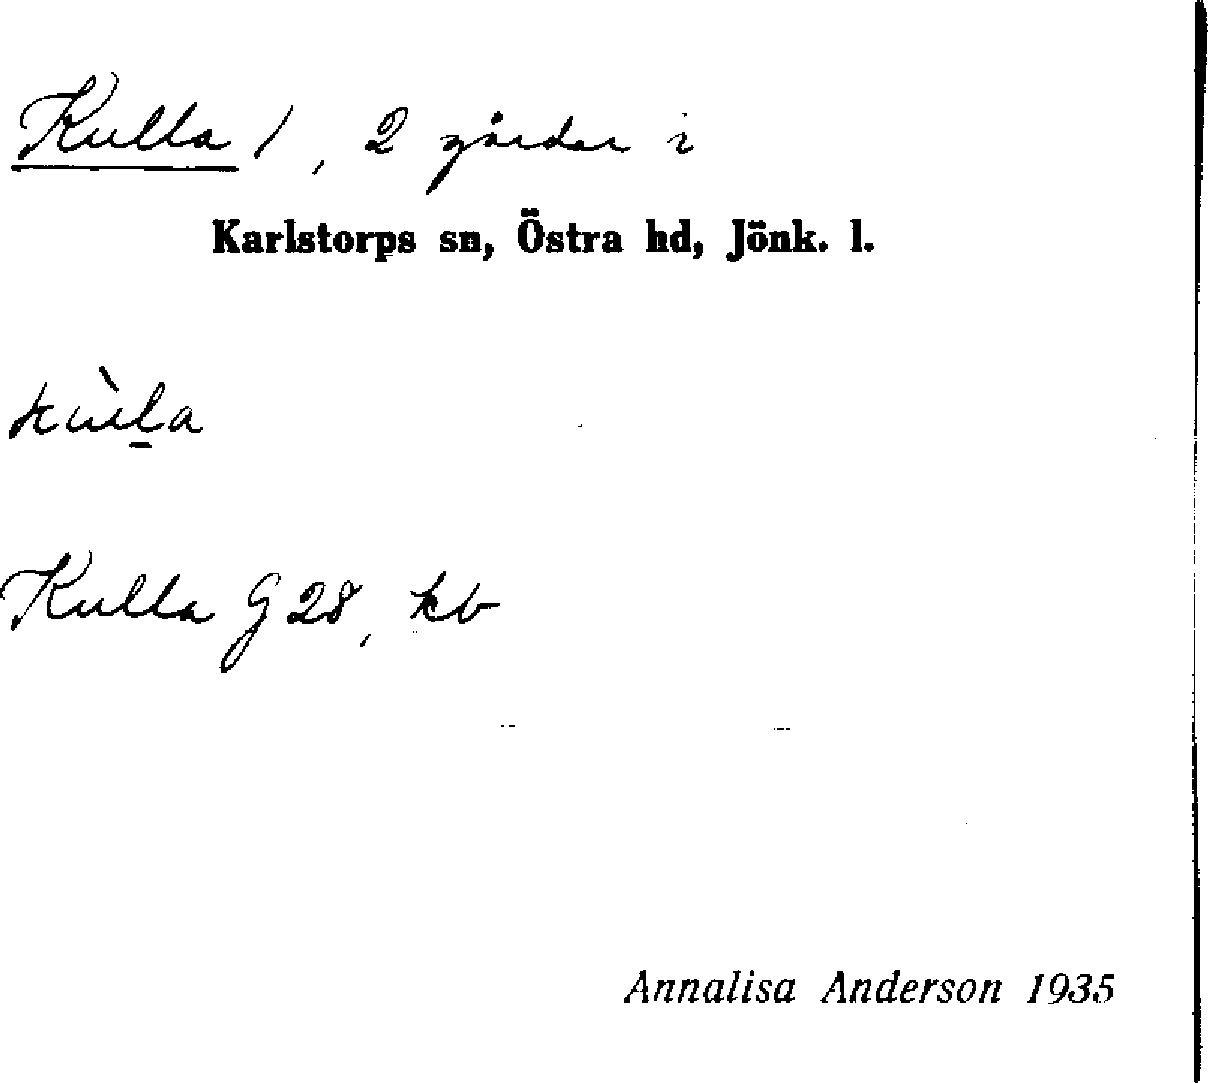 Kulla 1, 2 gårdar i
Karlstorps sn, Östra hd, Jönk. l.
kùl̲a
Kulla G 28, kb
Annalisa Anderson 1935